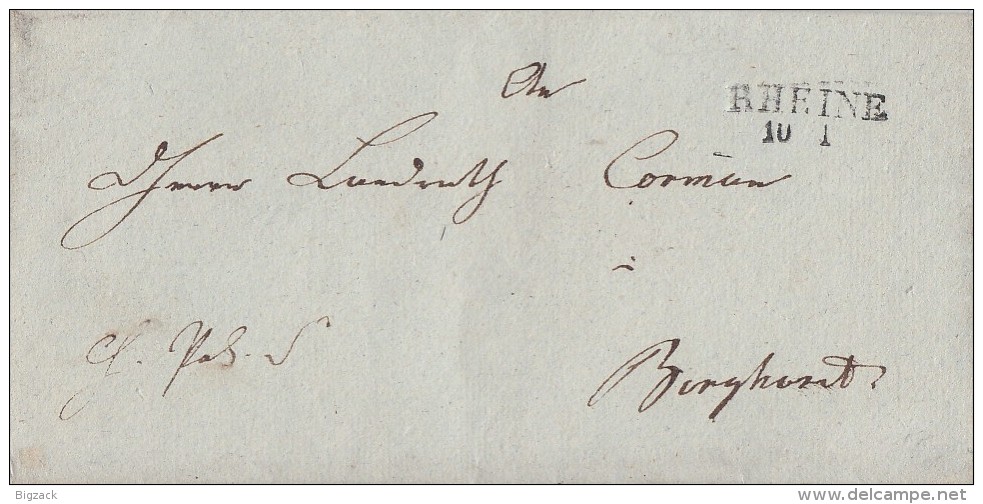 An
RHEINE
10 1
Herrn Landrath Cormān
i
Borghorst.
Bigzack
www.delcampe.net